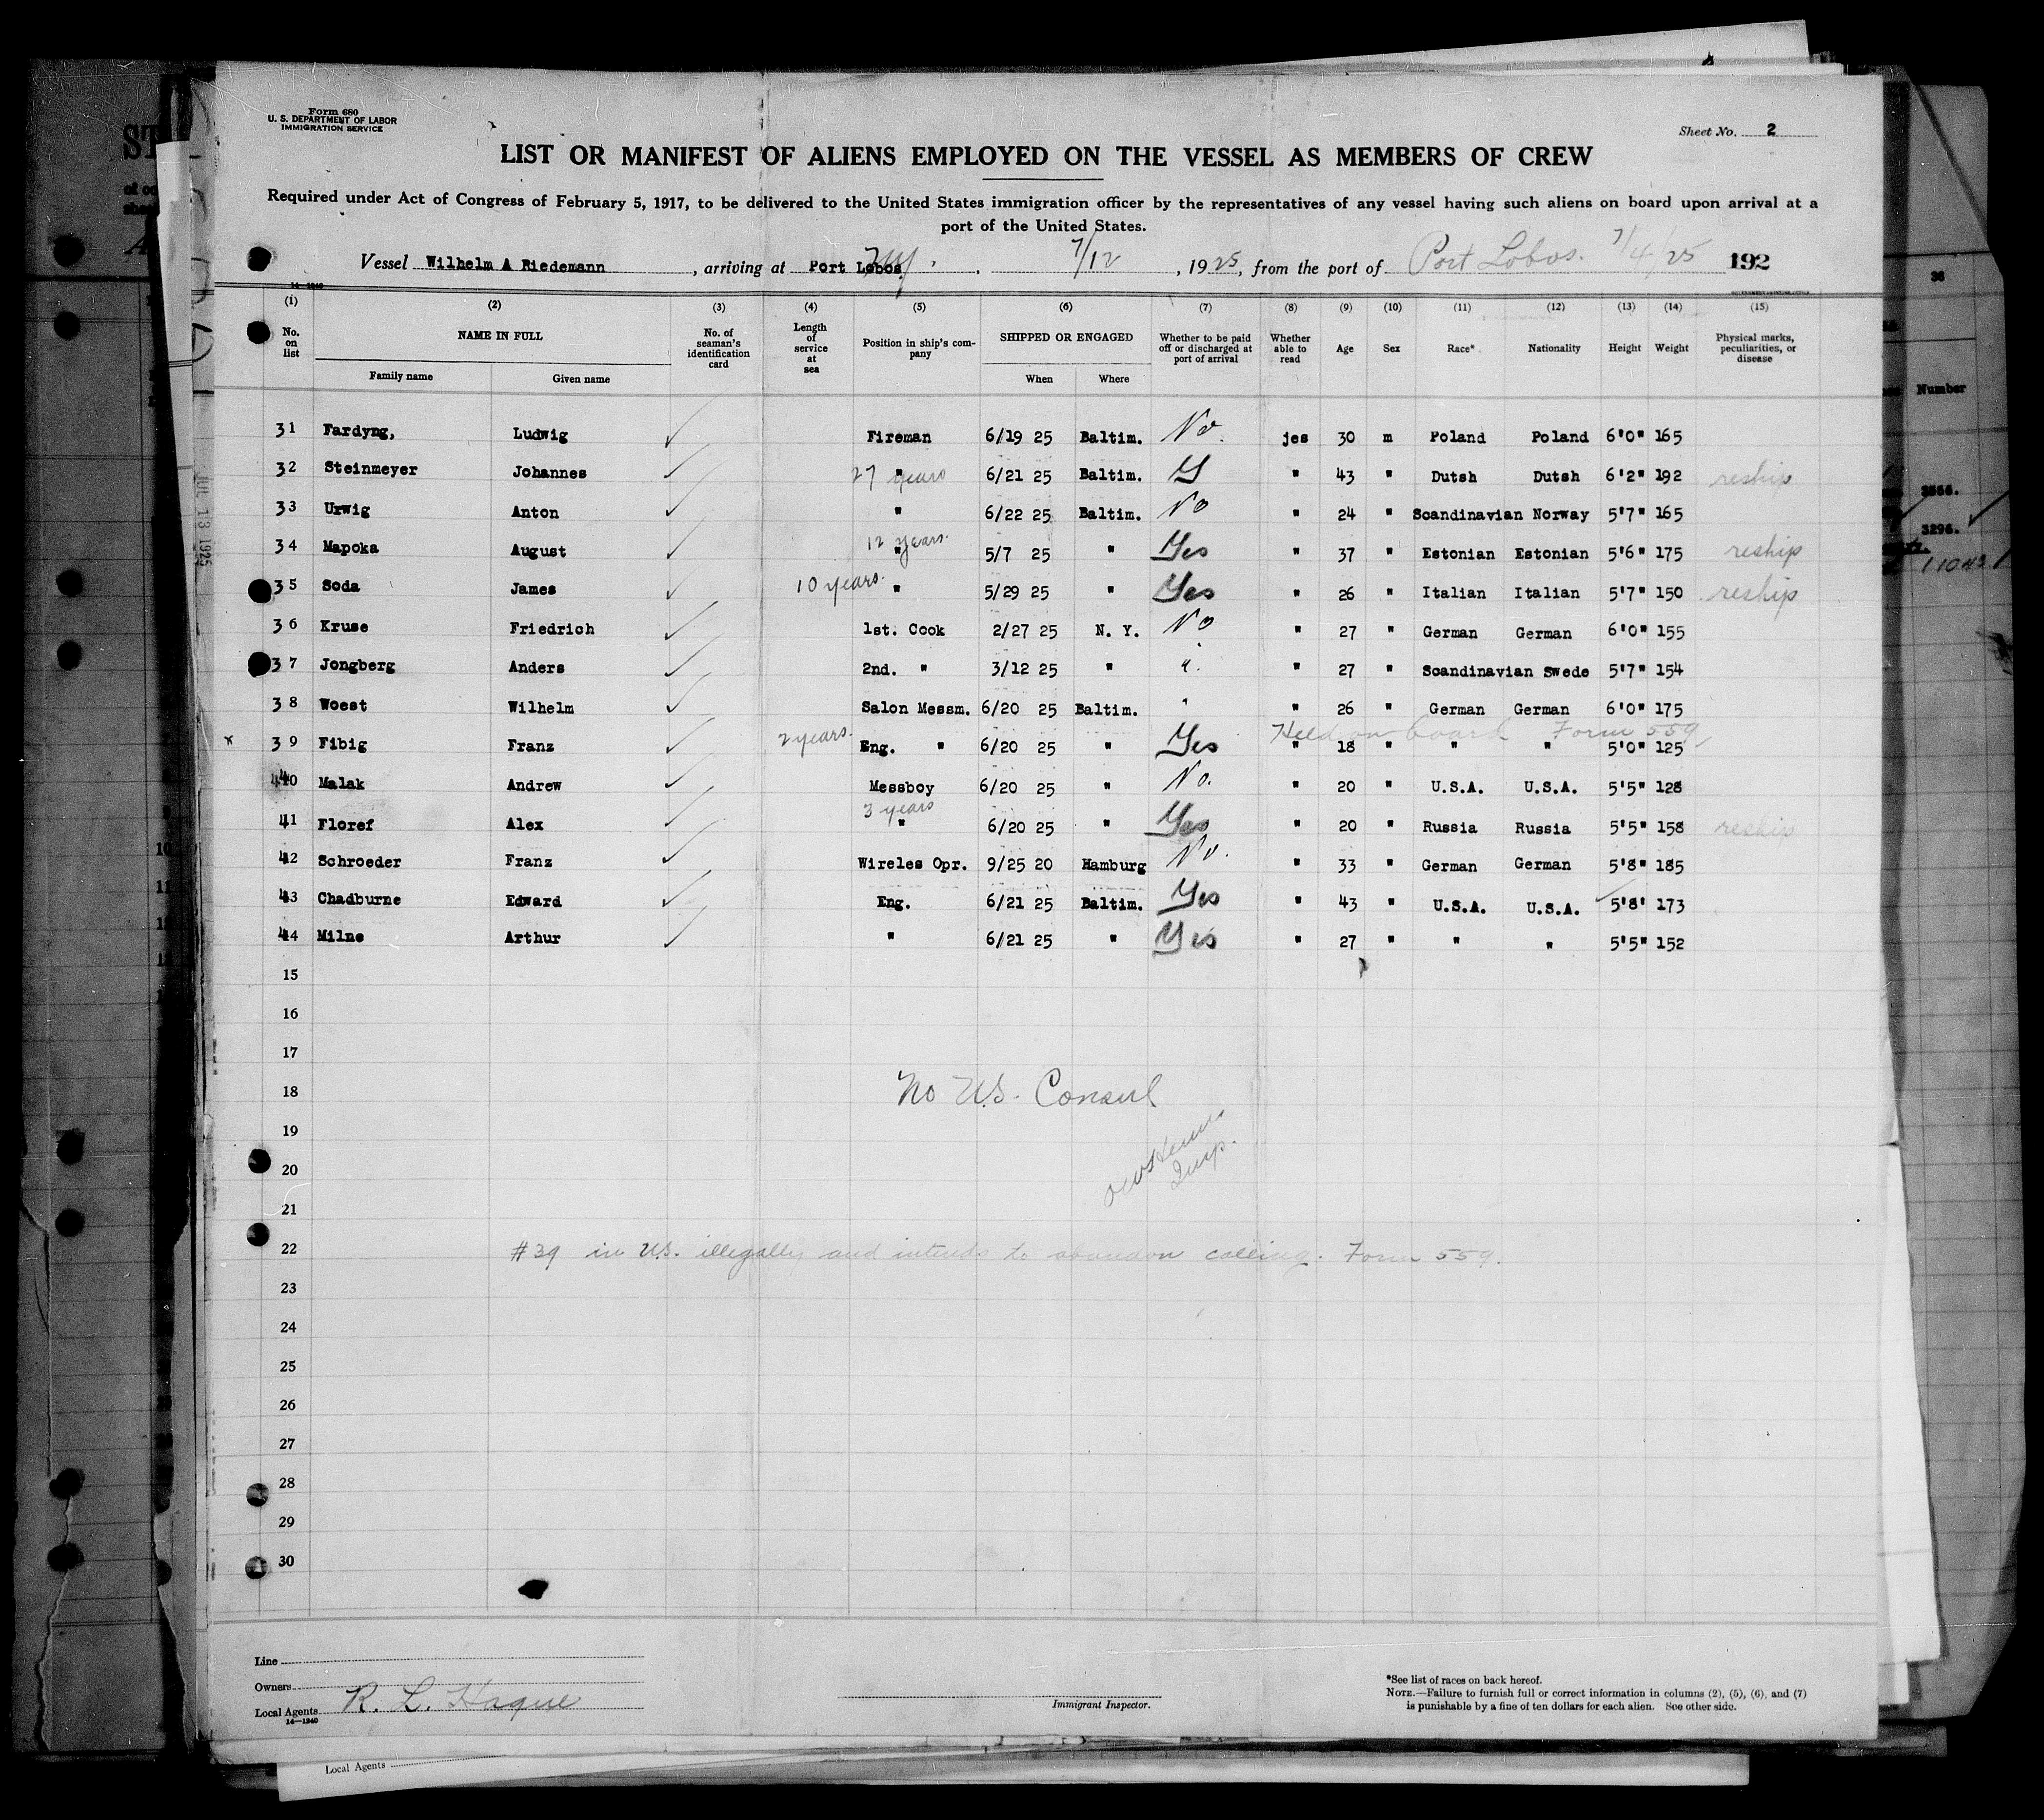 Form 680
U. S. DEPARTMENT OF LABOR
IMMIGRATION SERVICE
Sheet No. 2
LIST OR MANIFEST OF ALIENS EMPLOYED ON THE VESSEL AS MEMBERS OF CREW
Required under Act of Congress of February 5, 1917, to be delivered to the United States immigration officer by the representatives of any vessel having such aliens on board upon arrival at a
port of the United States.
Vessel Wilhelm A Riedemann, arriving at Port Lobos, 7/12, 1925, from the port of Port Lobos. 7/4/25 192
14-1240
(1) (2) (3) (4) (5) (6) (7) (8) (9) (10) (11) (12) (13) (14) (15)
No. on list NAME IN FULL Family name Given name No. of seaman's identification card Length of service at sea Position in ship's company SHIPPED OR ENGAGED When Where Whether to be paid off or discharged at port of arrival Whether able to read Age Sex Race* Nationality Height Weight Physical marks, peculiarities, or disease
31 Fardyng, Ludwig Fireman 6/19 25 Baltim. No. jes 30 m Poland Poland 6'0" 165
32 Steinmeyer Johannes 27 years " 6/21 25 Baltim. Y " 43 " Dutsh Dutsh 6'2" 192 reship
33 Urwig Anton " 6/22 25 Baltim. No " 24 " Scandinavian Norway 5'7" 165
34 Mapoka August 12 years. " 5/7 25 " Yes " 37 " Estonian Estonian 5'6" 175 reship
35 Soda James 10 years. " 5/29 25 " Yes " 26 " Italian Italian 5'7" 150 reship
36 Kruse Friedrich 1st. Cook 2/27 25 N. Y. No " 27 " German German 6'0" 155
37 Jongberg Anders 2nd. " 3/12 25 " " " 27 " Scandinavian Swede 5'7" 154
38 Woest Wilhelm Salon Messm. 6/20 25 Baltim. " " 26 " German German 6'0" 175
Held on board Form 559
x 39 Fibig Franz 2 years. Eng. " 6/20 25 " Yes " 18 " " " 5'0" 125
40 Malak Andrew Messboy 6/20 25 " No. " 20 " U.S.A. U.S.A. 5'5" 128
41 Floref Alex 3 years " 6/20 25 " Yes " 20 " Russia Russia 5'5" 158 reship
42 Schroeder Franz Wireles Opr. 9/25 20 Hamburg No. " 33 " German German 5'8" 185
43 Chadburne Edward Eng. 6/21 25 Baltim. Yes " 43 " U.S.A. U.S.A. 5'8' 173
44 Milne Arthur " 6/21 25 " Yes " 27 " " " 5'5" 152
15
16
17
18 No U.S. Consul
19
20 Insp.
21
22 #39 in U.S. illegally and intends to abandon calling. Form 559.
23
24
25
26
27
28
29
30
JUL 13 1925
Line
Owners
Local Agents R. L. Hague
14—1240
Immigrant Inspector.
*See list of races on back hereof.
NOTE.—Failure to furnish full or correct information in columns (2), (5), (6), and (7)
is punishable by a fine of ten dollars for each alien. See other side.
Local Agents
36
Number
3296.
11043